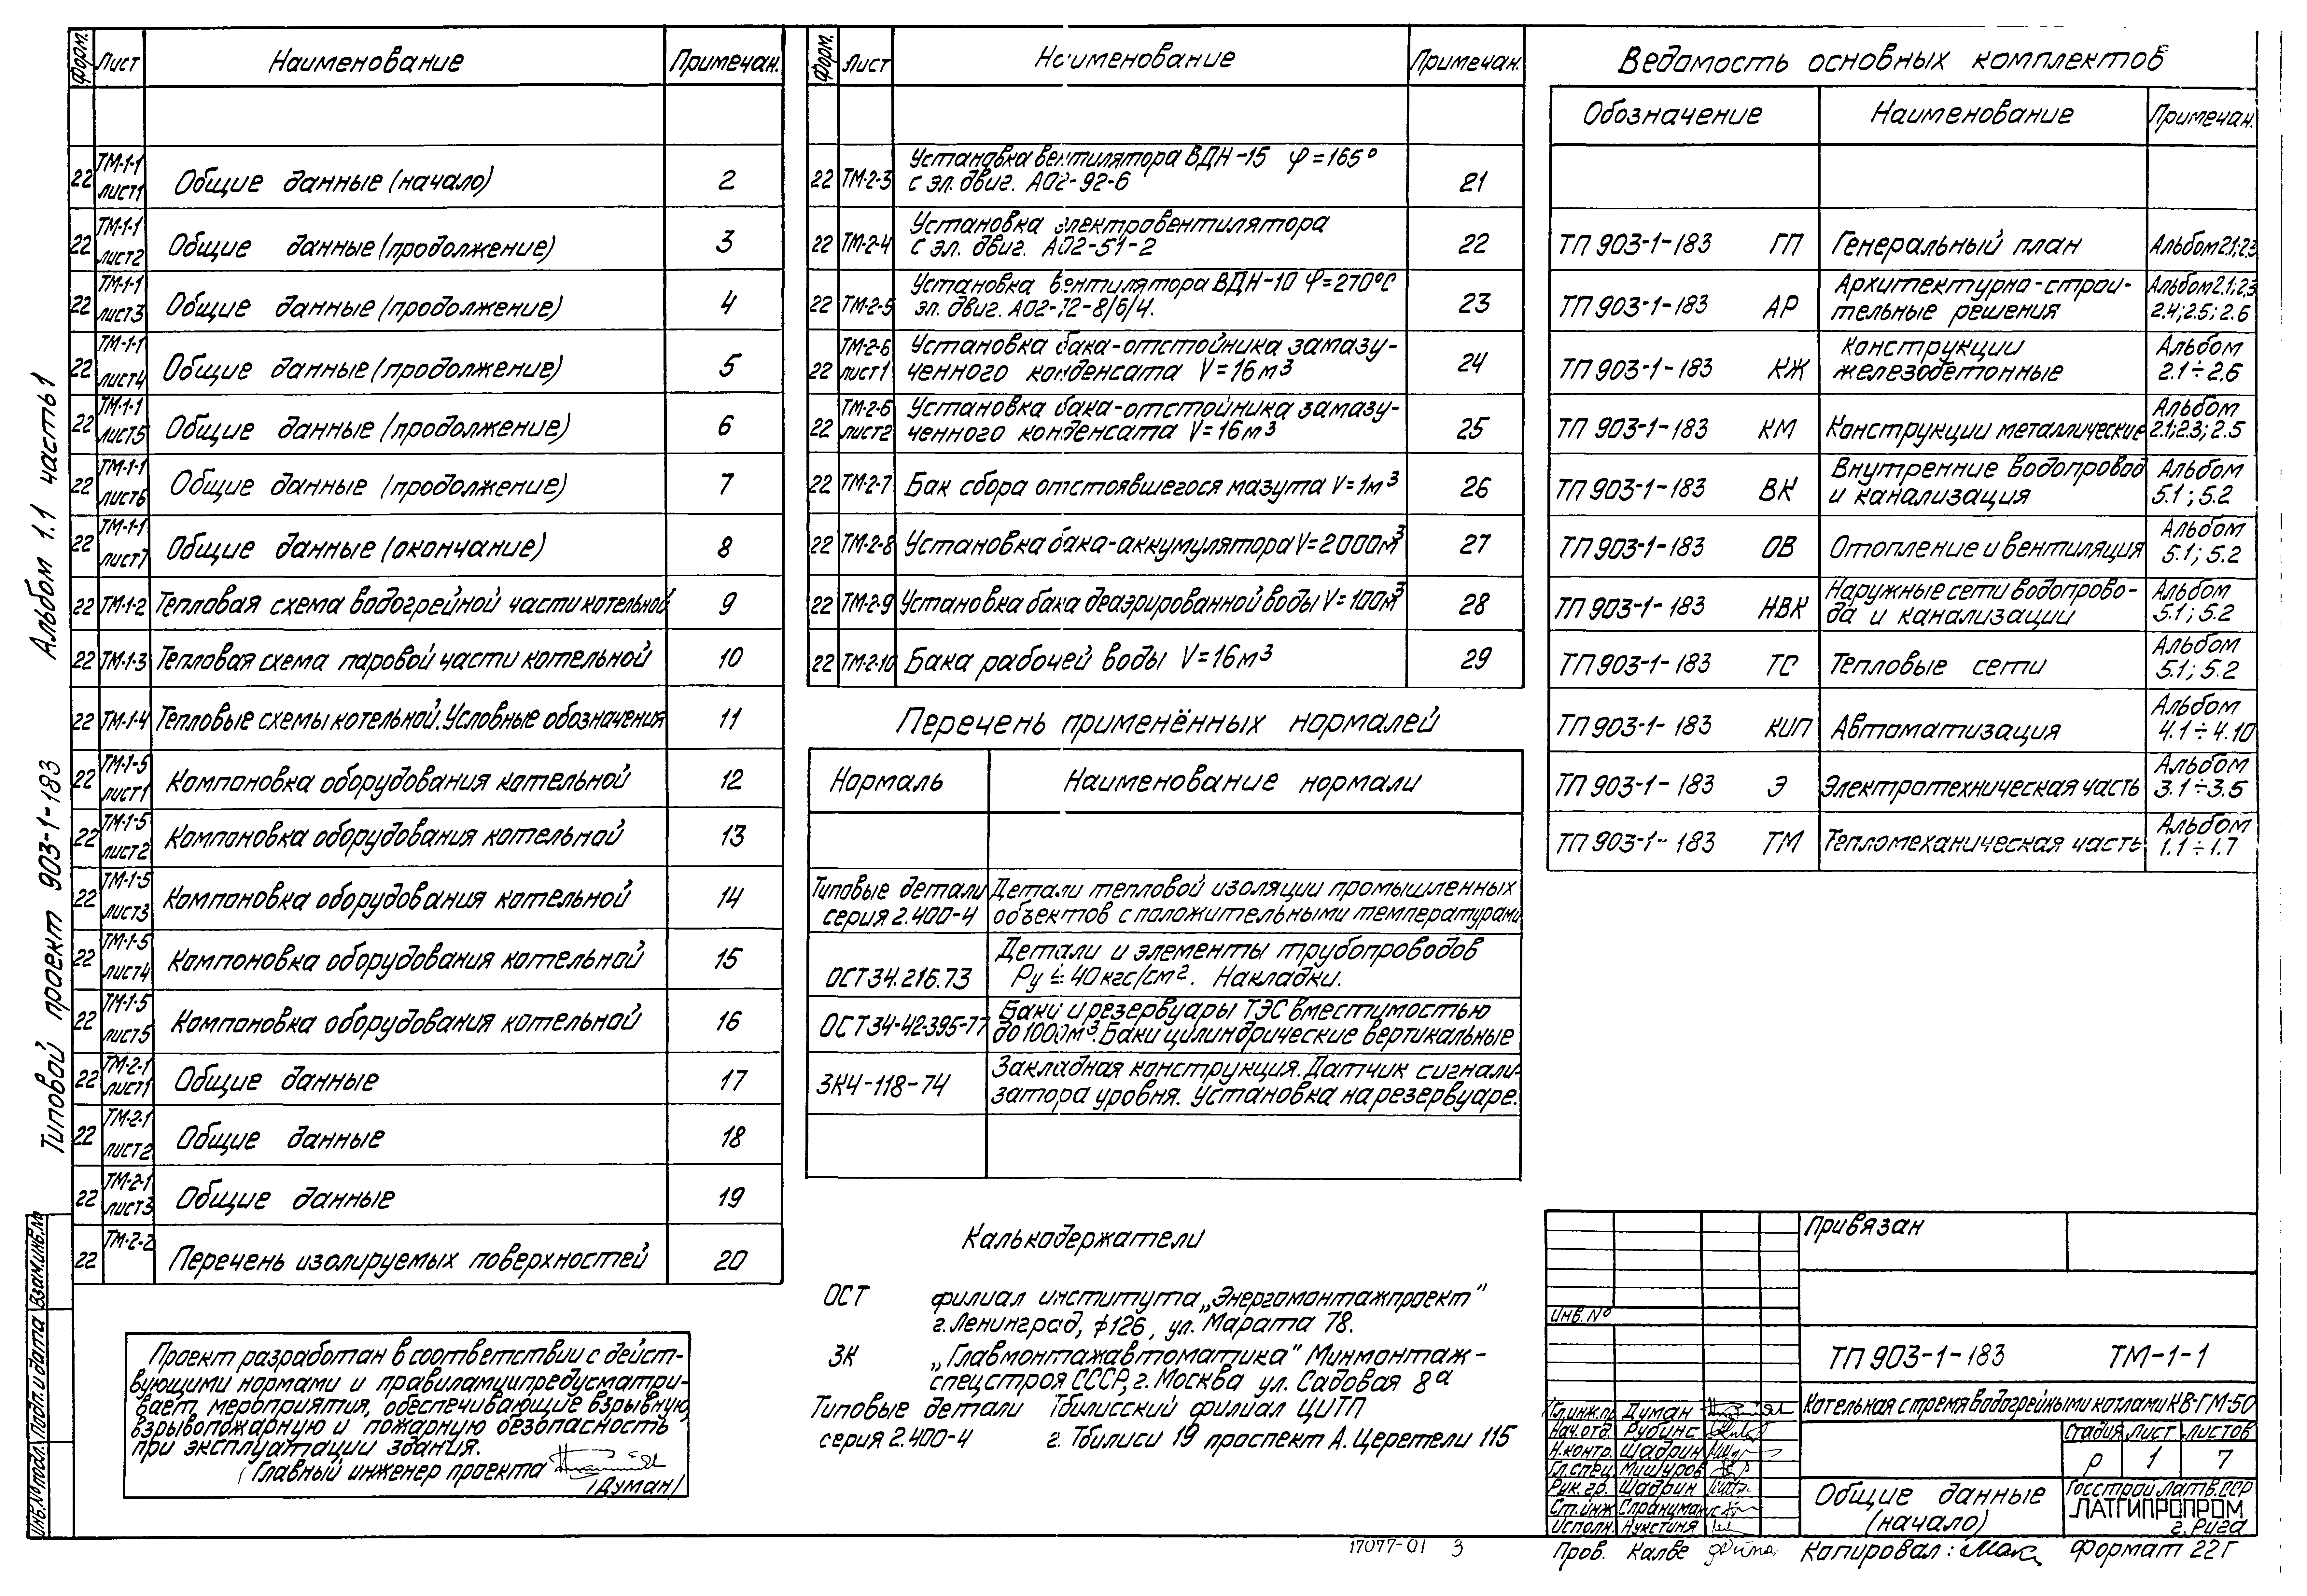 Альбом 1.1 часть 1
Типовой проект 903-1-183
Форм. Лист Наименование Примечан.
22 ТМ-1-1 лист1 Общие данные (начало) 2
22 ТМ-1-1 лист2 Общие данные (продолжение) 3
22 ТМ-1-1 лист3 Общие данные (продолжение) 4
22 ТМ-1-1 лист4 Общие данные (продолжение) 5
22 ТМ-1-1 лист5 Общие данные (продолжение) 6
22 ТМ-1-1 лист6 Общие данные (продолжение) 7
22 ТМ-1-1 лист7 Общие данные (окончание) 8
22 ТМ-1-2 Тепловая схема водогрейной части котельной 9
22 ТМ-1-3 Тепловая схема паровой части котельной 10
22 ТМ-1-4 Тепловые схемы котельной. Условные обозначения 11
22 ТМ-1-5 лист1 Компоновка оборудования котельной 12
22 ТМ-1-5 лист2 Компоновка оборудования котельной 13
22 ТМ-1-5 лист3 Компоновка оборудования котельной 14
22 ТМ-1-5 лист4 Компоновка оборудования котельной 15
22 ТМ-1-5 лист5 Компоновка оборудования котельной 16
22 ТМ-2-1 лист1 Общие данные 17
22 ТМ-2-1 лист2 Общие данные 18
22 ТМ-2-1 лист3 Общие данные 19
22 ТМ-2-2 Перечень изолируемых поверхностей 20
Проект разработан в соответствии с дейст-
вующими нормами и правилами и предусматри-
вает мероприятия, обеспечивающие взрывную,
взрывопожарную и пожарную безопасность
при эксплуатации здания.
Главный инженер проекта
/Думан/
Форм. Лист Наименование Примечан.
22 ТМ-2-3 Установка вентилятора ВДН-15 φ=165°
с эл. двиг. АО2-92-6 21
22 ТМ-2-4 Установка электровентилятора
с эл. двиг. АО2-51-2 22
22 ТМ-2-5 Установка вентилятора ВДН-10 φ=270°С
эл. двиг. АО2-72-8/6/4. 23
22 ТМ-2-6 лист1 Установка бака-отстойника замазу-
ченного конденсата V=16м³ 24
22 ТМ-2-6 лист2 Установка бака-отстойника замазу-
ченного конденсата V=16м³ 25
22 ТМ-2-7 Бак сбора отстоявшегося мазута V=1м³ 26
22 ТМ-2-8 Установка бака-аккумулятора V=2000м³ 27
22 ТМ-2-9 Установка бака деаэрированной воды V=100м³ 28
22 ТМ-2-10 Бака рабочей воды V=16м³ 29
Перечень применённых нормалей
Нормаль Наименование нормали
Типовые детали серия 2.400-4 Детали тепловой изоляции промышленных
объектов с положительными температурами
ОСТ 34.216.73 Детали и элементы трубопроводов
Ру ≤ 40 кгс/см². Накладки.
ОСТ 34-42-395-77 Баки и резервуары ТЭС вместимостью
до 1000м³. Баки цилиндрические вертикальные
ЗК4-118-74 Закладная конструкция. Датчик сигнали-
затора уровня. Установка на резервуаре.
Калькодержатели
ОСТ филиал института „Энергомонтажпроект"
г. Ленинград, ф126, ул. Марата 78.
ЗК „Главмонтажавтоматика" Минмонтаж-
спецстроя СССР, г. Москва ул. Садовая 8а
Типовые детали Тбилисский филиал ЦИТП
серия 2.400-4 г. Тбилиси 19 проспект А. Церетели 115
Ведомость основных комплектов
Обозначение Наименование Примечан.
ТП 903-1-183 ГП Генеральный план Альбом 2.1; 2.3
ТП 903-1-183 АР Архитектурно-строи-
тельные решения Альбом 2.1; 2.3 2.4; 2.5; 2.6
ТП 903-1-183 КЖ Конструкции
железобетонные Альбом 2.1÷2.6
ТП 903-1-183 КМ Конструкции металлические Альбом 2.1; 2.3; 2.5
ТП 903-1-183 ВК Внутренние водопровод
и канализация Альбом 5.1; 5.2
ТП 903-1-183 ОВ Отопление и вентиляция Альбом 5.1; 5.2
ТП 903-1-183 НВК Наружные сети водопрово-
да и канализации Альбом 5.1; 5.2
ТП 903-1-183 ТС Тепловые сети Альбом 5.1; 5.2
ТП 903-1-183 КИП Автоматизация Альбом 4.1÷4.10
ТП 903-1-183 Э Электротехническая часть Альбом 3.1÷3.5
ТП 903-1-183 ТМ Тепломеханическая часть Альбом 1.1÷1.7
Привязан
Инв. №
ТП 903-1-183 ТМ-1-1
Котельная с тремя водогрейными котлами КВ-ГМ-50
Гл.инж.пр. Думан
Нач.отд. Рубинс
Н.контр. Шадрин
Гл.спец. Мишуров
Рук.гр. Шадрин
Ст.инж.
Исполн. Нукстиня
Стадия Лист Листов
Р 1 7
Общие данные
(начало)
Госстрой Латв.ССР
ЛАТГИПРОПРОМ
г. Рига
Взам.инв.№
Подп. и дата
Инв.№ подл.
17077-01 3
Пров. Калве
Копировал:
Формат 22Г